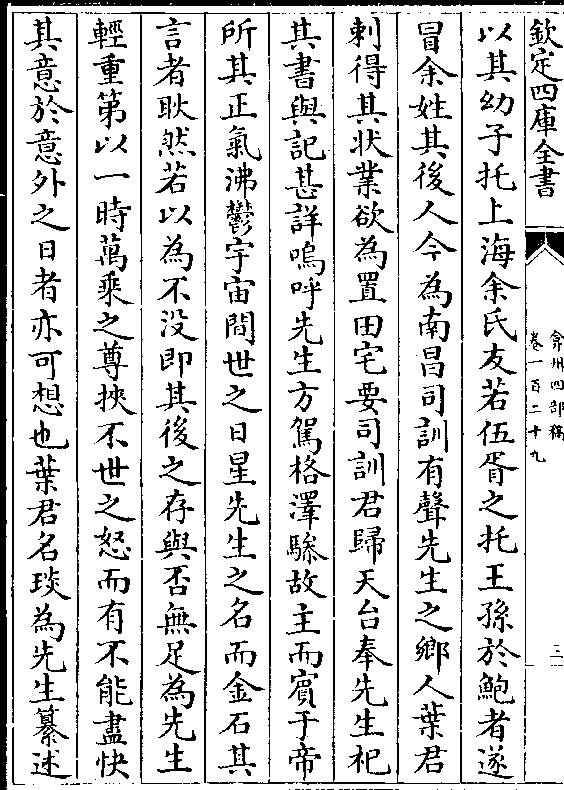 欽定四庫全書
弇州四部稿
卷一百二十九
三
以其幼子托上海余氏友若伍胥之托王孫於鮑者遂
冒余姓其後人今為南昌司訓有聲先生之鄉人葉君
刺得其状業欲為置田宅要司訓君歸天台奉先生祀
其書與記甚詳嗚呼先生方駕格澤驂故主而賓于帝
所其正氣沸鬱宇宙間世之日星先生之名而金石其
言者耿然若以為不没即其後之存與否無足為先生
輕重第以一時萬乘之尊挾不世之怒而有不能盡快
其意於意外之日者亦可想也葉君名琰為先生纂述